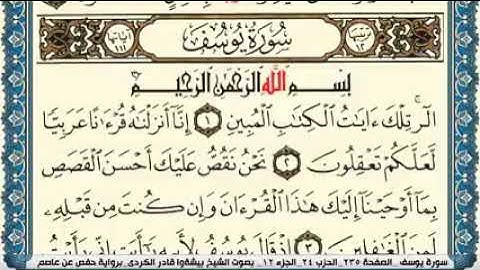 ترتيبها ١٢ سُورَةُ يُوسُفَ آياتها ١١١
بِسْمِ ٱللَّهِ ٱلرَّحْمَٰنِ ٱلرَّحِيمِ
الٓرۚ تِلْكَ ءَايَٰتُ ٱلْكِتَٰبِ ٱلْمُبِينِ ١ إِنَّآ أَنزَلْنَٰهُ قُرْءَٰنًا عَرَبِيًّا
لَّعَلَّكُمْ تَعْقِلُونَ ٢ نَحْنُ نَقُصُّ عَلَيْكَ أَحْسَنَ ٱلْقَصَصِ
بِمَآ أَوْحَيْنَآ إِلَيْكَ هَٰذَا ٱلْقُرْءَانَ وَإِن كُنتَ مِن قَبْلِهِۦ
لَمِنَ ٱلْغَٰفِلِينَ ٣ إِذْ قَالَ يُوسُفُ لِأَبِيهِ يَٰٓأَبَتِ إِنِّى رَأَيْتُ
سورة يوسف _ الصفحة ٢٣٥ _ الحزب ٢٤ _ الجزء ١٢ _ بصوت الشيخ بيشةوا قادر الكردى _ برواية حفص عن عاصم